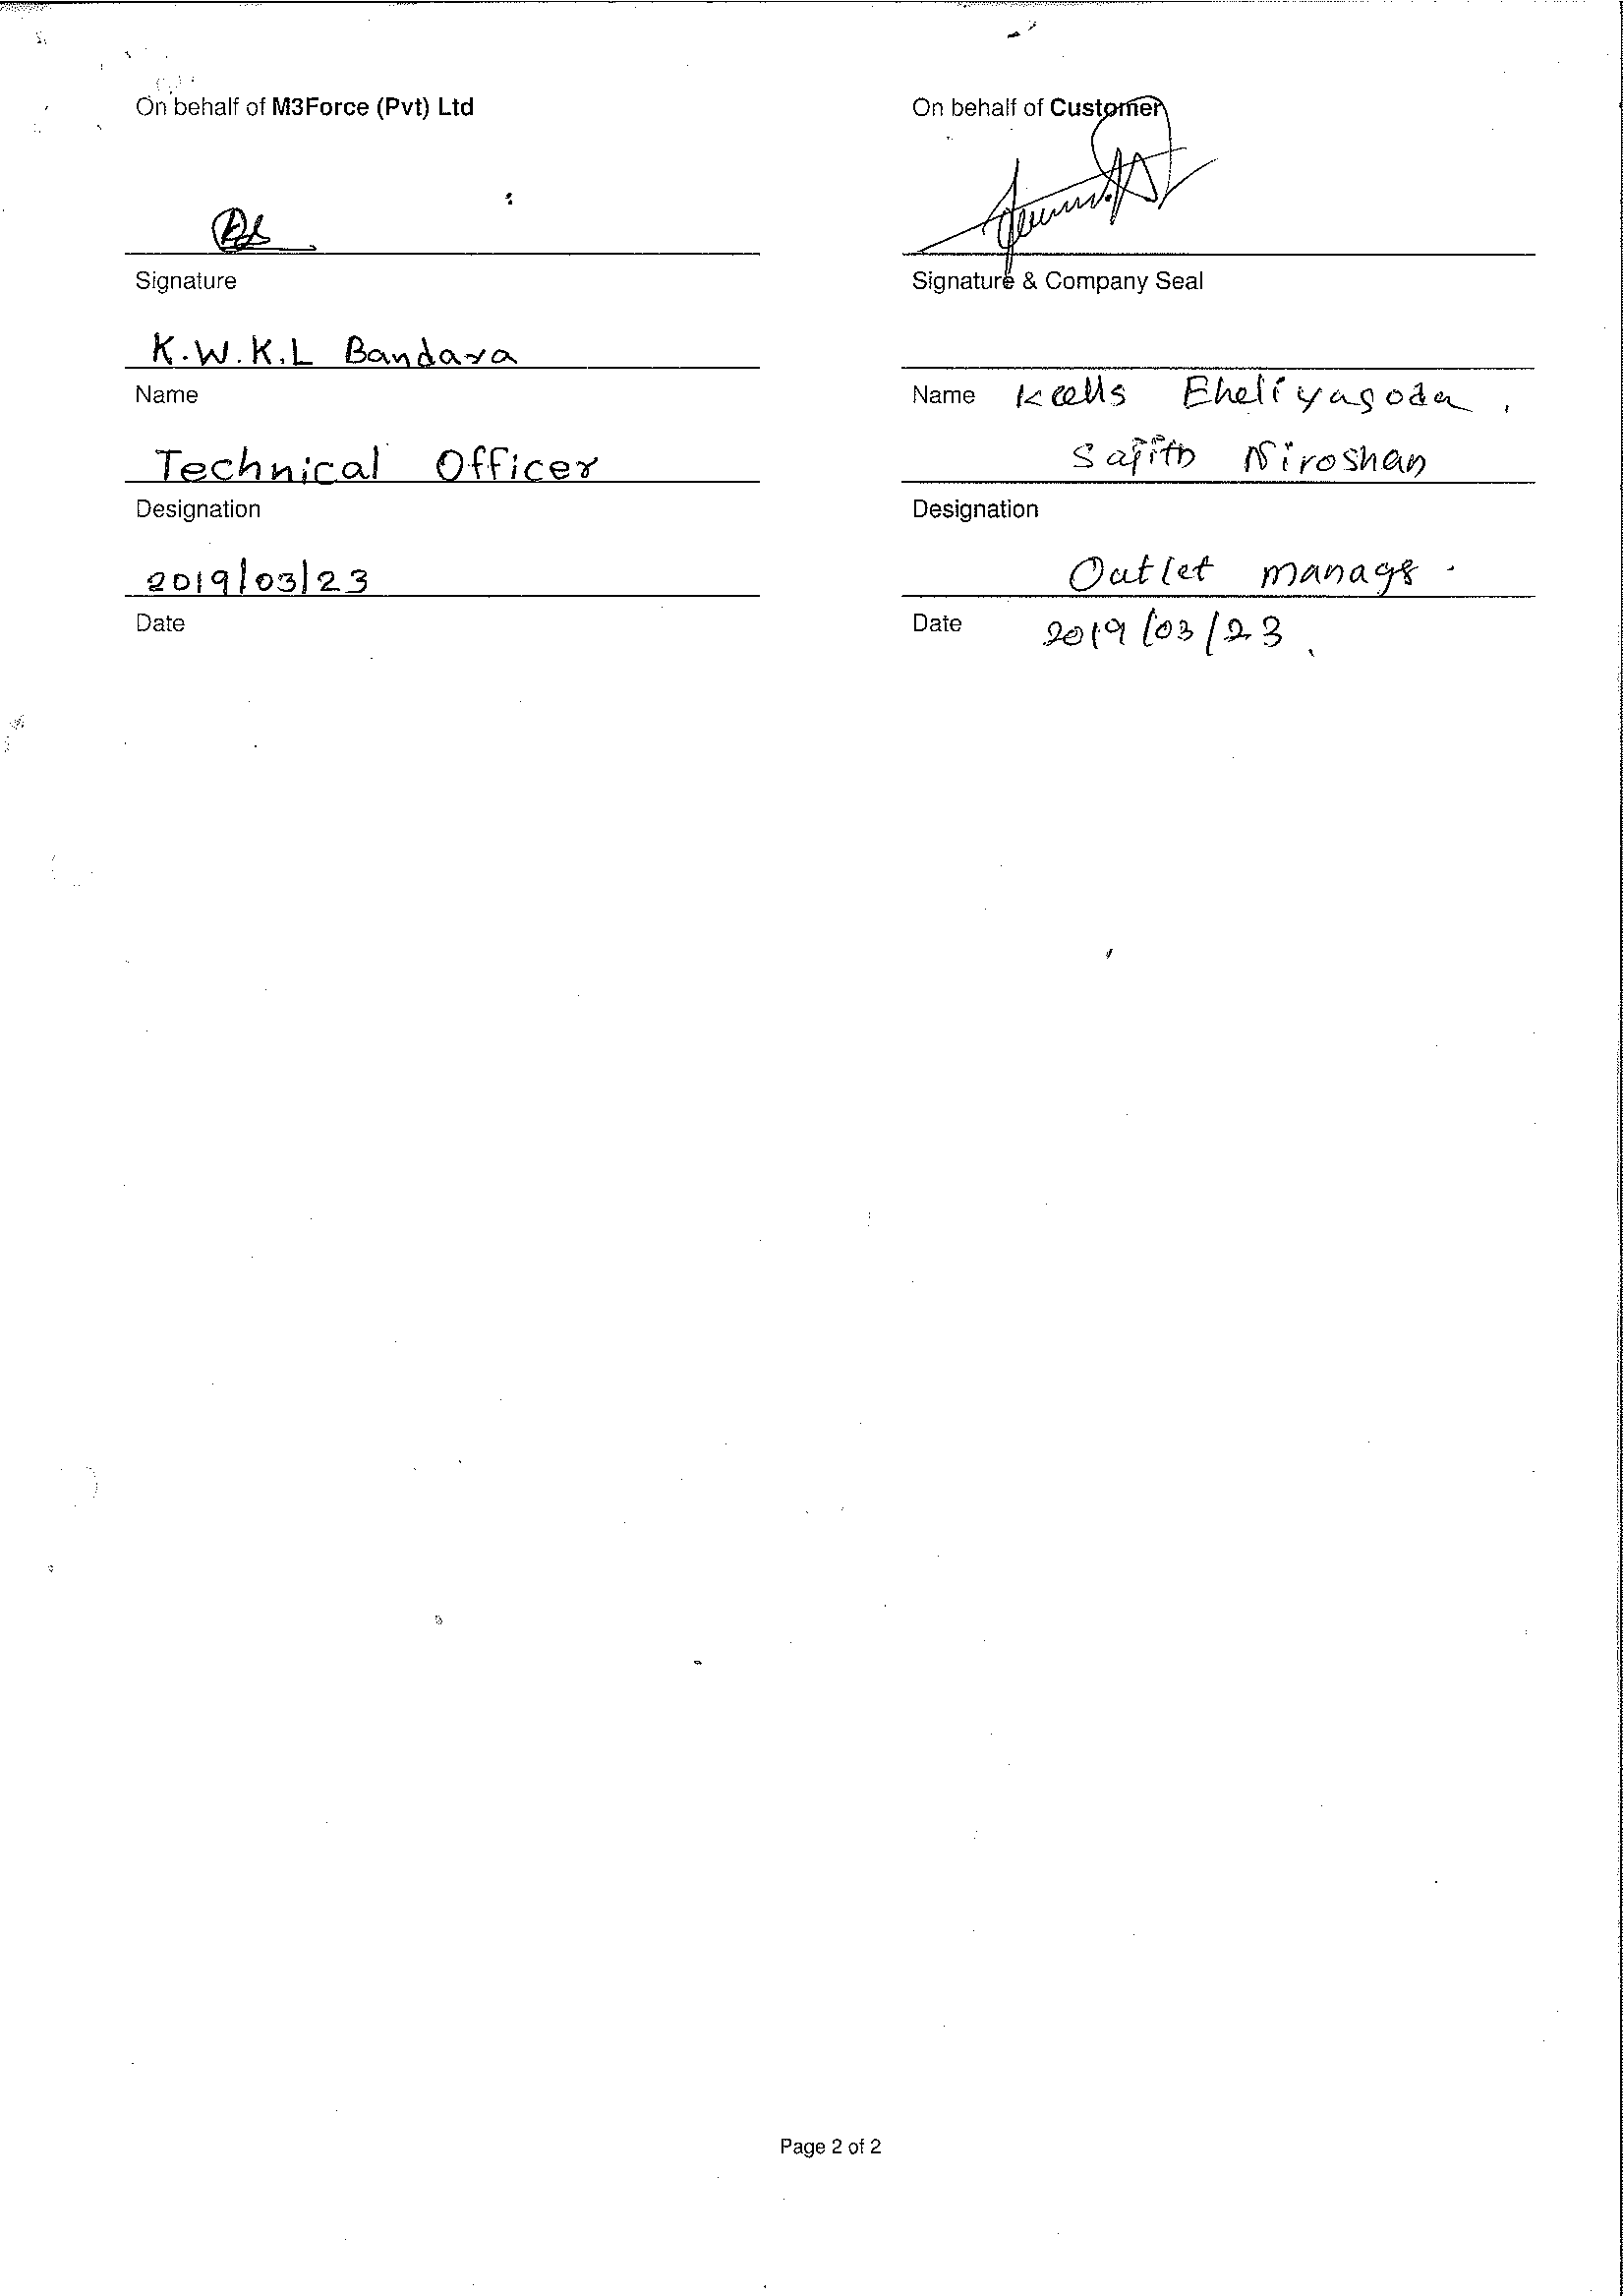 On behalf of M3Force (Pvt) Ltd
Signature
K.W.K.L Bandara
Name
Technical Officer
Designation
2019/03/23
Date
On behalf of Customer
Signature & Company Seal
Name Keells Eheliyagoda.
Sajith Niroshan
Designation
Outlet manager.
Date 2019/03/23.
Page 2 of 2